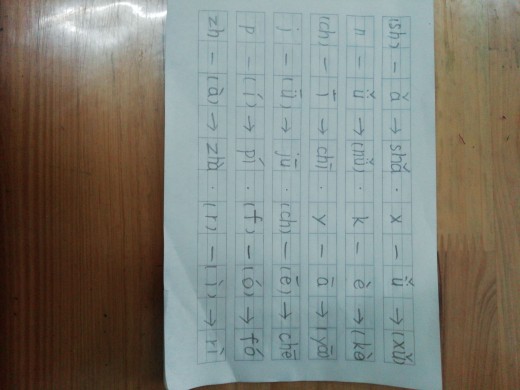 (sh) — ǎ → shǎ · x — ǚ → (xǔ)
n — ǚ → (nǚ) · k — è → (kè
(ch) — ī → chī · y — ā → (yā)
j — (ǖ) → jū · (ch) — (ē) → chē
p — (í) → pí · (f) — (ó) → fó
zh — (à) → zhà · (r) — (ì) → rì